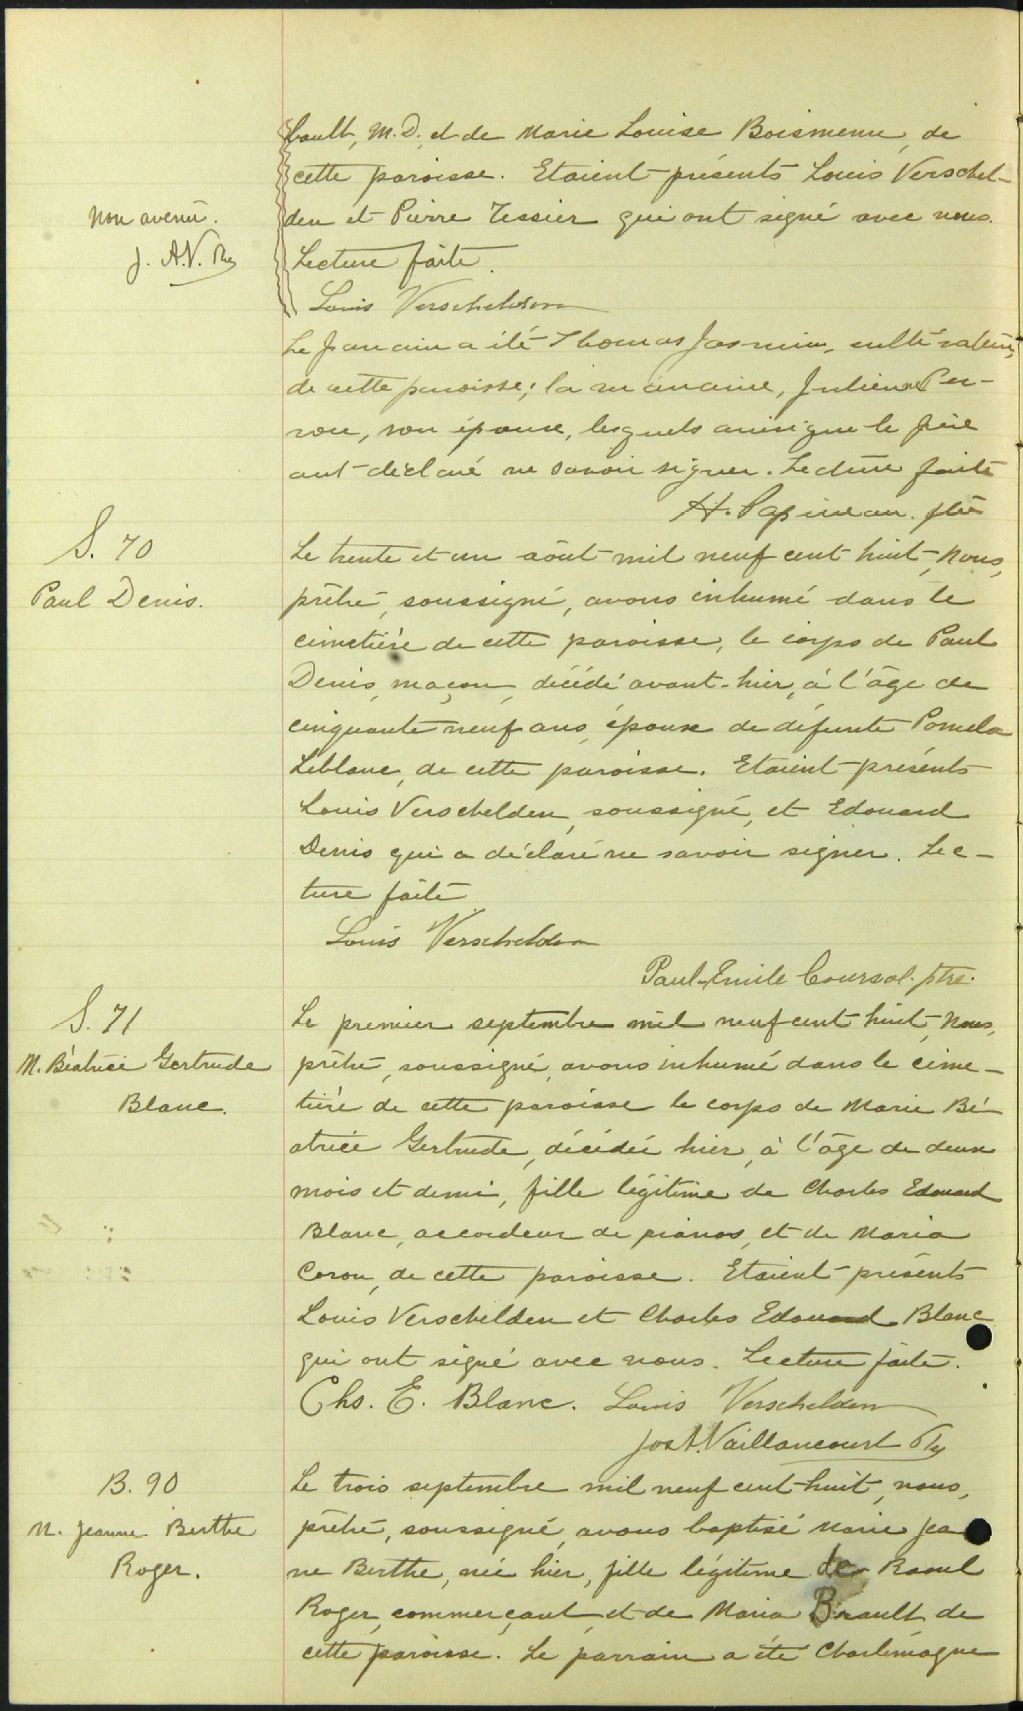 bault, M.D. et de Marie Louise Boismenu, de
cette paroisse. Etaient présents Louis Verschel-
den et Pierre Tessier qui ont signé avec nous.
Non avenu.
J. A.V. Ptre
Lecture faite.
Louis Verschelden
Le parrain a été Thomas Jasmin, cultivateur,
de cette paroisse; la marraine, Julienne Per-
ron, son épouse, lesquels ainsi que le père
ont déclaré ne savoir signer. Lecture faite
H. Papineau. ptre
S. 70
Paul Denis.
Le trente et un août mil neuf cent huit, Nous,
prêtre, soussigné, avons inhumé dans le
cimetière de cette paroisse, le corps de Paul
Denis, maçon, décédé avant-hier, à l'âge de
cinquante neuf ans, époux de défunte Pomela
Leblanc, de cette paroisse. Etaient présents
Louis Verschelden, soussigné, et Edouard
Denis qui a déclaré ne savoir signer. Lec-
ture faite
Louis Verschelden
Paul-Emile Coursol. ptre.
S. 71
M. Béatrice Gertrude
Blanc.
Le premier septembre mil neuf cent huit, Nous,
prêtre, soussigné, avons inhumé dans le cime-
tière de cette paroisse le corps de Marie Bé-
atrice Gertrude, décédée hier, à l'âge de deux
mois et demi, fille légitime de Charles Edouard
Blanc, accordeur de pianos, et de Maria
Caron, de cette paroisse. Etaient présents
Louis Verschelden et Charles Edouard Blanc
qui ont signé avec nous. Lecture faite.
Chs. E. Blanc. Louis Verschelden
Jos A. Vaillancourt Ptre
B. 90
M. Jeanne Berthe
Roger.
Le trois septembre mil neuf cent huit, nous,
prêtre, soussigné, avons baptisé Marie Jea
ne Berthe, née hier, fille légitime de Raoul
Roger, commerçant, et de Maria Brault de
cette paroisse. Le parrain a été Charlemagne